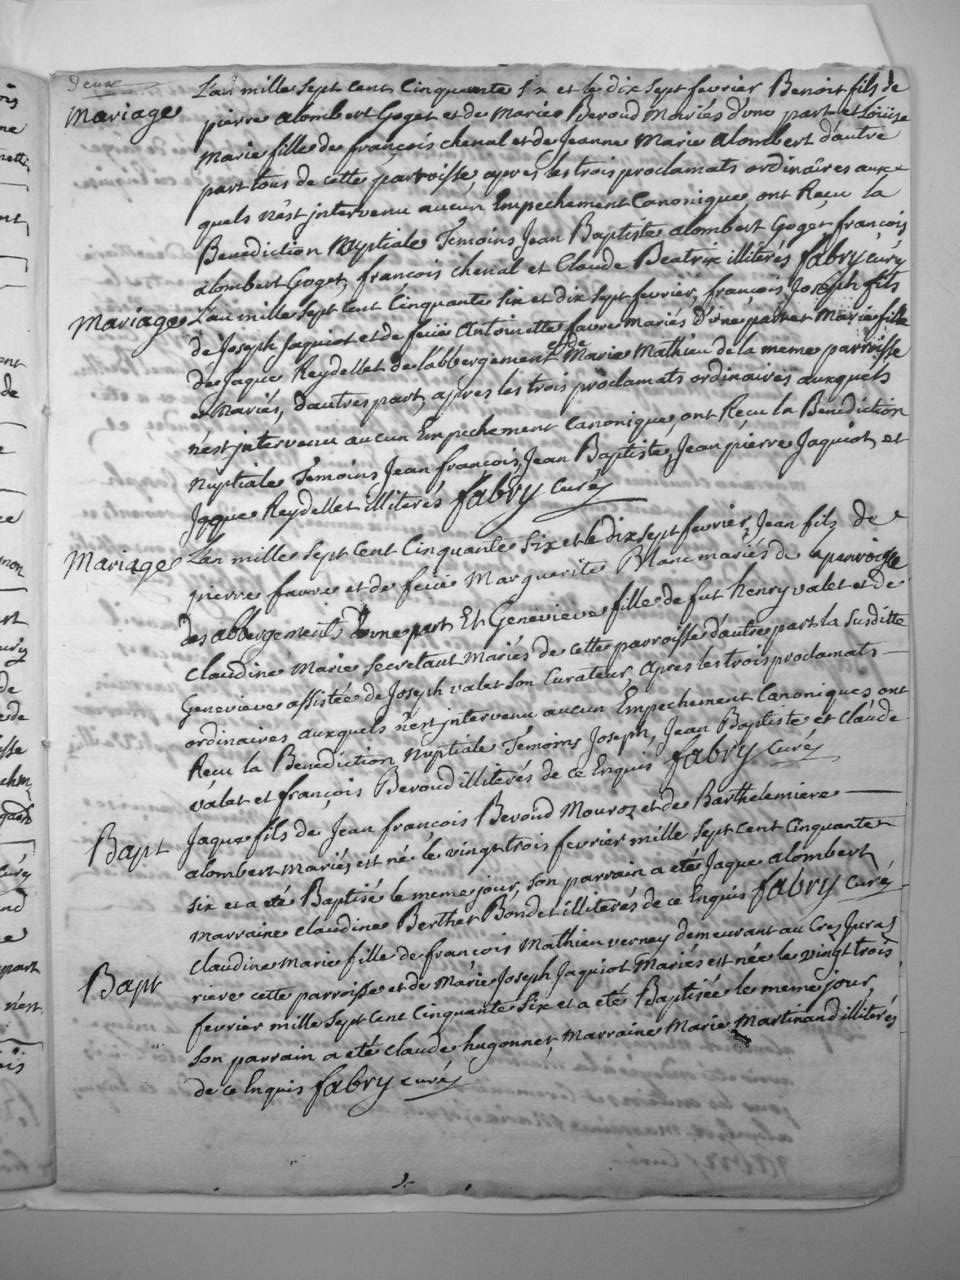 Deux
Mariage L'an mille sept cent Cinquante six et le dix sept fevrier Benoit fils de
pierre alombert Goget et de Marie Beroud Mariés d'une part et Loüise
Marie fille de françois chenal et de Jeanne Marie alombert d'autre
part tous de cette parroisse, apres les trois proclamats ordinaires aux
quels n'est intervenu aucun Empechement Canonique, ont Reçu la
Benediction Nuptiale Temoins Jean Baptiste alombert Goget françois
alombert Goget, francois chenal et Claude Beatrix illiterés fabry curé
Mariage L'an mille sept cent Cinquante six et dix sept fevrier, françois Joseph fils
de Joseph Jaquiot et de feüe Antoinette favre Mariés d'une part et Marie fille
de Jaque Reydellet de l'abbergement et de Marie Mathieu de la meme parroisse
Mariés, d'autres part, apres les trois proclamats ordinaires auxquels
n'est intervenu aucun Empechement Canonique, ont Recu la Benediction
Nuptiale Temoins Jean francois, Jean Baptiste, Jean pierre Jaquiot, et
Jaque Reydellet illiterés fabry Curé
Mariage L'an mille sept cent Cinquante six et le dix sept fevrier, Jean fils de
pierre favre et de feüe Marguerite Blanc mariés de la parroisse
des abbergements d'une part Et Genevieve fille de fut henry valet et de
Claudine Marie Secretant Mariés de cette parroisse d'autre part la Susditte
Genevieve assistée de Joseph valet son Curateur, apres les trois proclamats
ordinaires auxquels n'est intervenu aucun Empechement Canoniques ont
Recu la Benediction Nuptiale Temoins Joseph, Jean Baptiste et Claude
valet et françois Beroud illiterés de ce Enquis fabry Curé
Bapt Jaque fils de Jean francois Beroud Mouroz et de Barthelemiere
alombert mariés est né le vingt trois fevrier mille sept cent Cinquante
six et a été Baptisé le meme jour, son parrain a eté Jaque alombert
marraine claudine Berthet Bondet illiterés de ce Enquis fabry Curé
Bapt Claudine Marie fille de francois Mathieu verney demeurant au Cres Juras
riere cette parroisse et de Marie Joseph Jaquiot Mariés est née le vingt trois
fevrier mille sept cent Cinquante six et a eté Baptisée le meme jour,
son parrain a eté claude hugonnet, Marraine Marie Martinand illiterés
de ce Enquis fabry curé